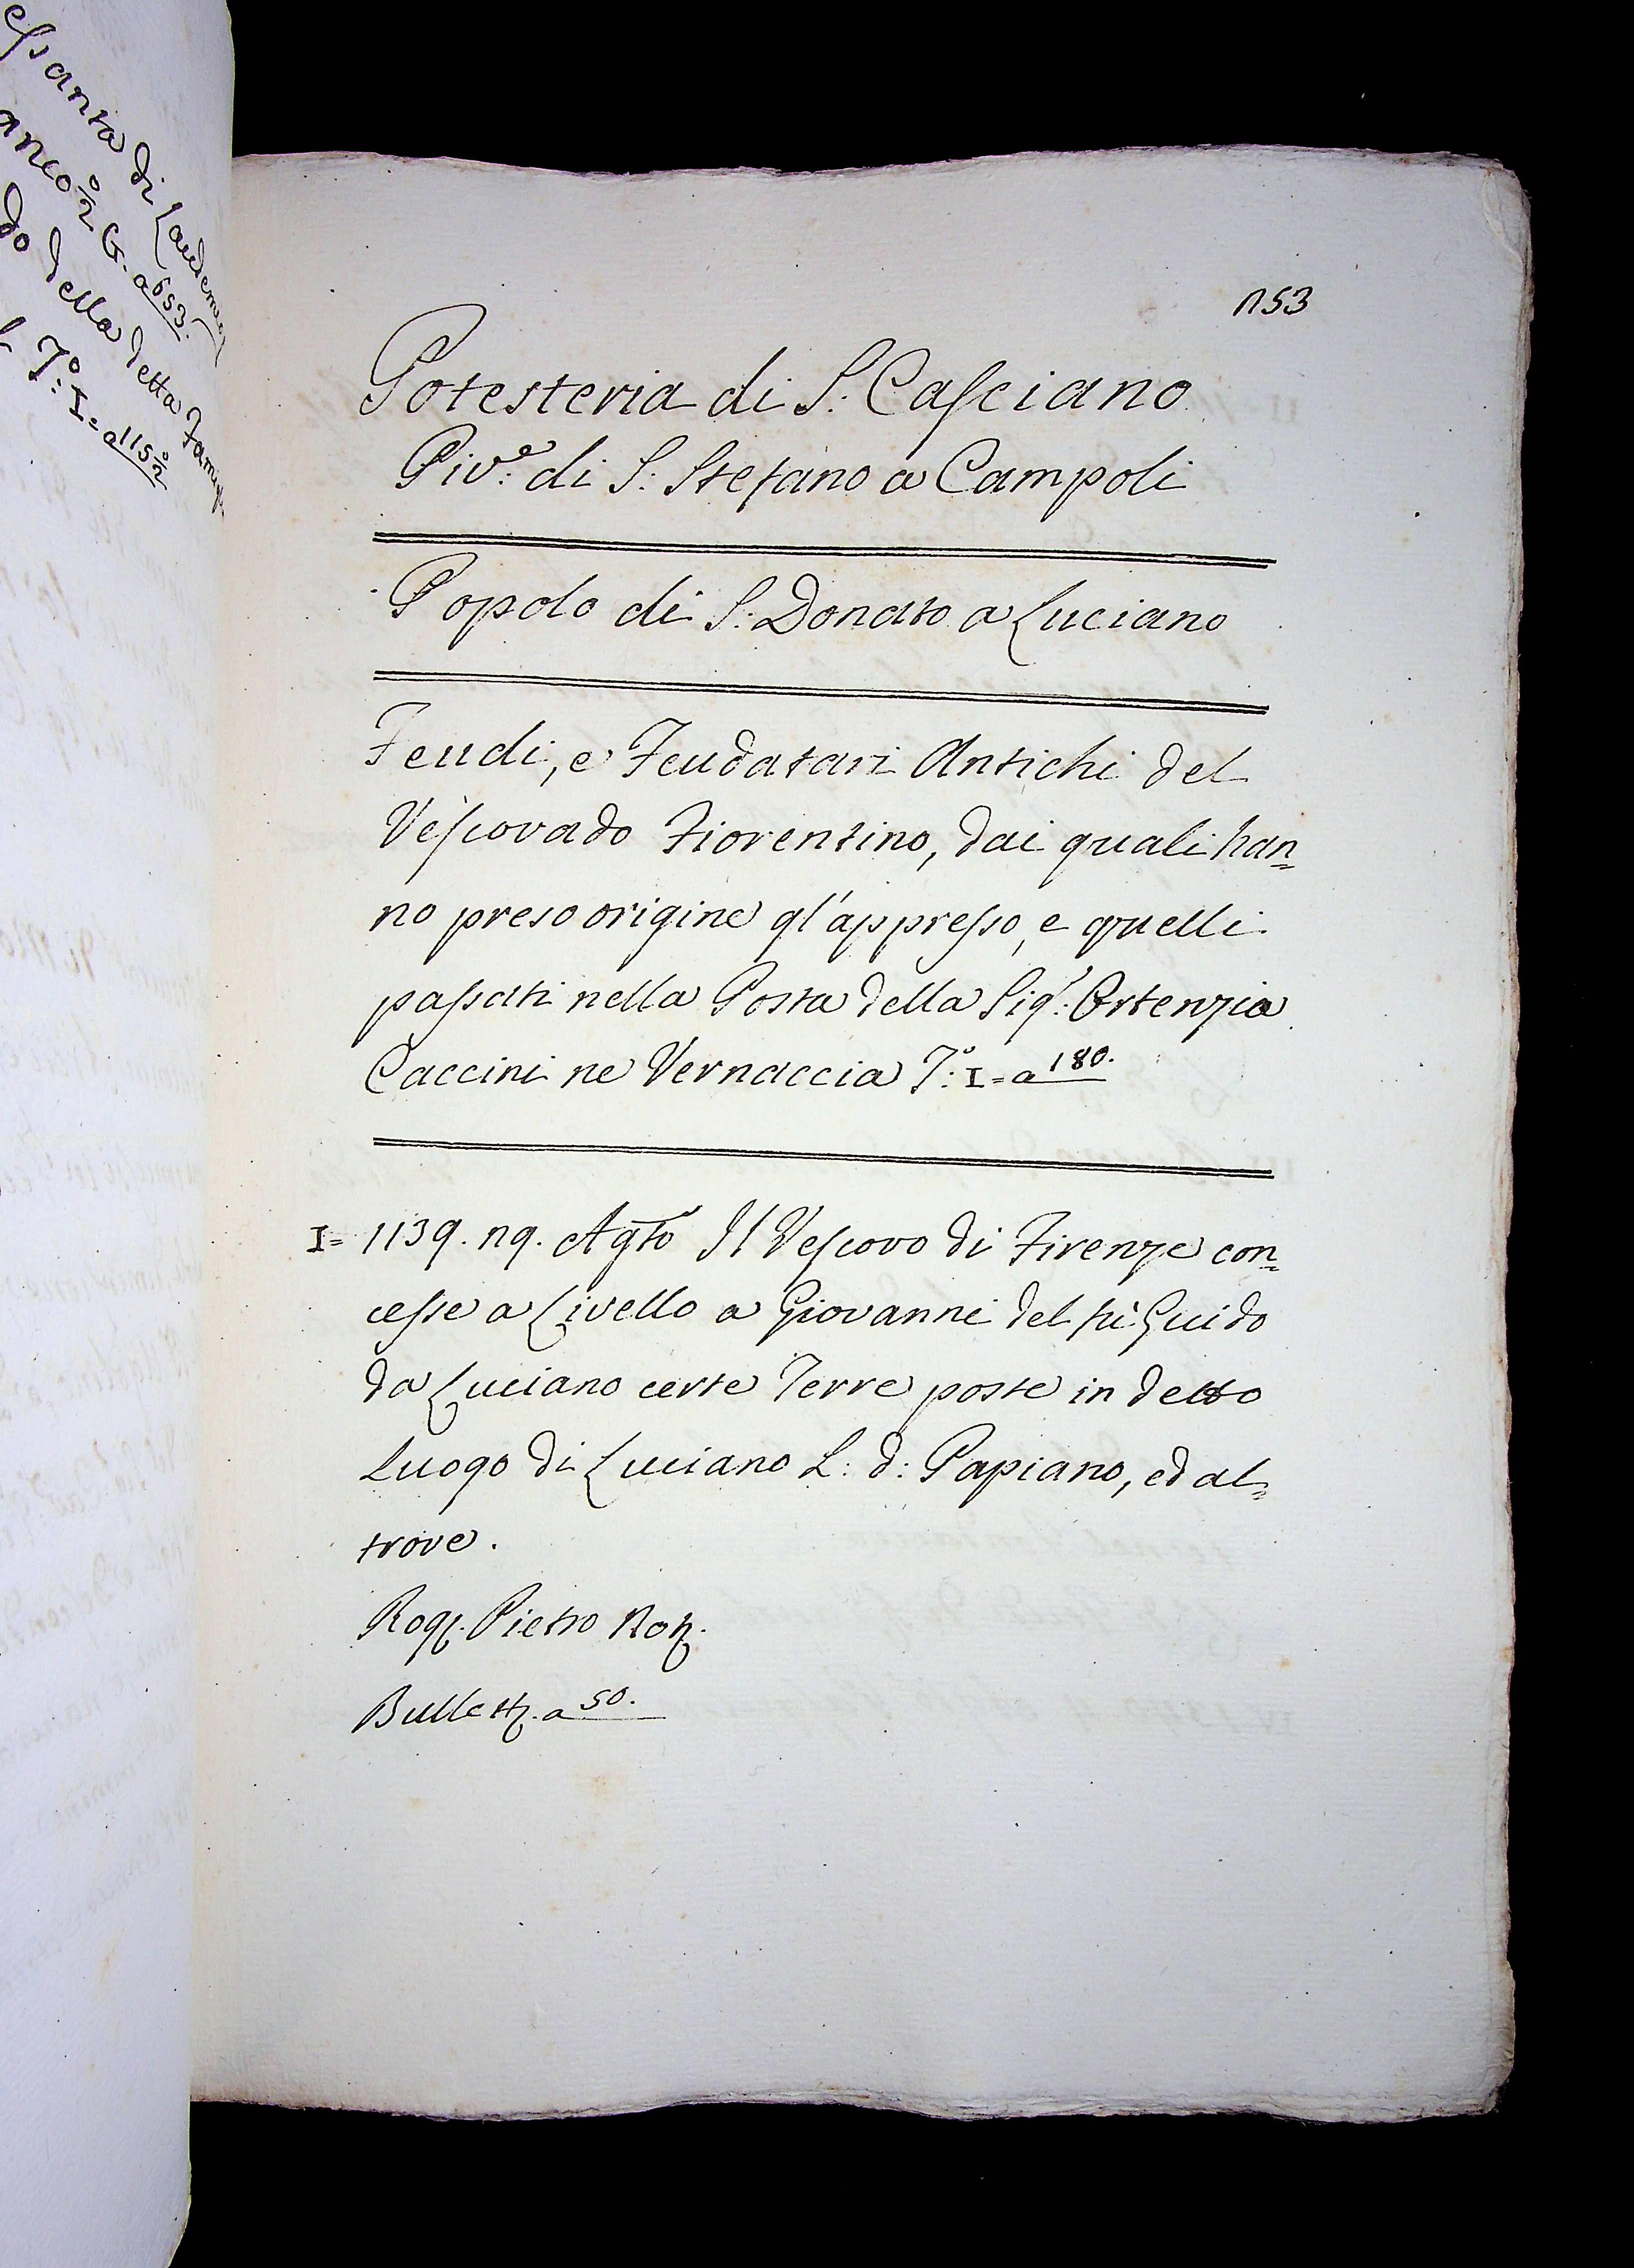 di Laudemi
a 653.
do della detta Famigl
T.º I= a 115
253
Potesteria di S: Casciano
Piv.e di S: Stefano a Campoli
Popolo di S: Donato a Luciano
Feudi, e Feudatari Antichi del
Vescovado Fiorentino, dai quali han=
no preso origine gl'appresso, e quelli
passati nella Posta della Sig.ª Ortenzia
Caccini ne Vernaccia T.º I= a 180.
I= 1139. 29. Agto Il Vescovo di Firenze con=
cesse a Livello a Giovanni del fù Guido
da Luciano certe Terre poste in detto
Luogo di Luciano L: d: Papiano, ed al=
trove.
Rog. Pietro Not.
Bullett. a 50.